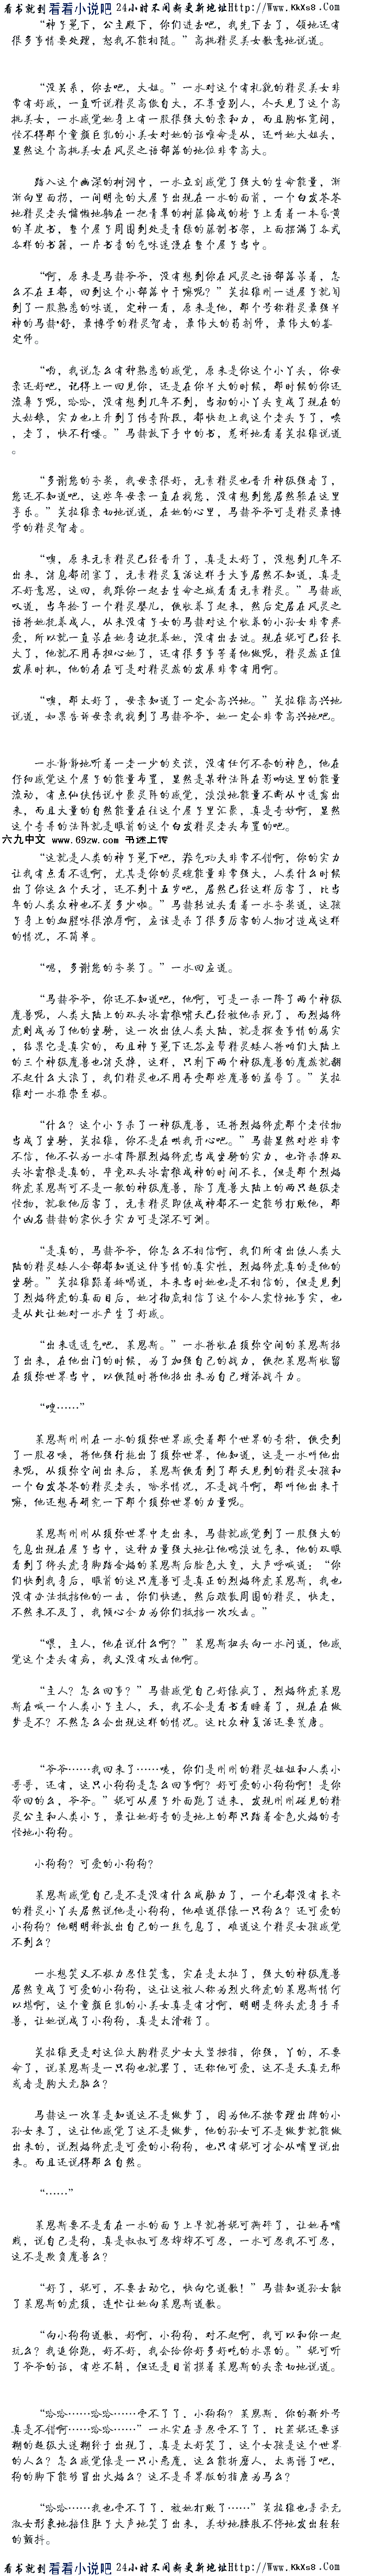 看书就到看看小说吧 24小时不间断更新地址Http://Www.KkXs8.Com
“神子冕下，公主殿下，你们进去吧，我先下去了，领地还有
很多事情要处理，恕我不能相陪。”高挑精灵美女歉意地说道。
“没关系，你去吧，大姐。”一水对这个有礼貌的精灵美女非
常有好感，一直听说精灵高傲自大，不尊重别人，今天见了这个高
挑美女，一水感觉她身上有一股很强大的亲和力，而且胸怀宽阔，
怪不得那个童颜巨乳的小美女对她的话唯命是从，还叫她大姐头，
显然这个高挑美女在风灵之语部落的地位非常高大。
踏入这个幽深的树洞中，一水立刻感觉了强大的生命能量，渐
渐向里面拐，一间明亮的大屋子出现在一水的面前，一个白发苍苍
地精灵老头慵懒地躺在一把青翠的树藤编成的椅子上看着一本昏黄
的羊皮书，整个屋子周围到处是青绿的藤制书架，上面摆满了各式
各样的书籍，一片书香的气味迷漫在整个屋子当中。
“啊，原来是马赫爷爷，没有想到你在风灵之语部落呆着，怎
么不在王都，回到这个小部落中干嘛呢？”芙拉维刚一进屋子就闻
到了一股熟悉的味道，定神一看，原来是他，那个号称精灵最强半
神的马赫·舒，最博学的精灵智者，最伟大的药剂师，最伟大的鉴
定师。
“哟，我说怎么有种熟悉的感觉，原来是你这个小丫头，你母
亲还好吧，记得上一回见你，还是在你半大的时候，那时候的你还
流鼻子呢，哈哈，没有想到几年不到，当初的小丫头变成了现在的
大姑娘，实力也上升到了传奇阶段，都快赶上我这个老头子了，唉
，老了，快不行喽。”马赫放下手中的书，慈祥地看着芙拉维说道
。
“多谢您的夸奖，我母亲很好，元素精灵也晋升神级强者了，
您还不知道吧，这些年母亲一直在找您，没有想到您居然躲在这里
享乐。”芙拉维亲切地说道，在她的心里，马赫爷爷可是精灵最博
学的精灵智者。
“噢，原来元素精灵已经晋升了，真是太好了，没想到几年不
出来，消息都闭塞了，元素精灵复活这样子大事居然不知道，真是
不好意思，这回，我跟你一起去生命之城看看元素精灵。”马赫感
叹道，当年捡了一个精灵婴儿，便收养了起来，然后定居在风灵之
语将她抚养成人，从来没有子女的马赫对这个收养的小孙女非常疼
爱，所以就一直呆在她身边抚养她，没有出去过。现在妮可已经长
大了，他就不用再担心她了，还有很多事等着他做呢，精灵族正值
发展时机，他的存在可是对精灵族的发展非常有用啊。
“噢，那太好了，母亲知道了一定会高兴地。”芙拉维高兴地
说道，如果告诉母亲我找到了马赫爷爷，她一定会非常高兴地吧。
一水静静地听着一老一少的交谈，没有任何不奈的神色，他在
仔细感觉这个屋子的能量布置，显然是某种法阵在影响这里的能量
流动，有点仙侠传说中聚灵阵的感觉，淡淡地能量不断从中透露出
来，而且大量的自然能量在往这个屋子里汇聚，真是奇妙啊，显然
这个奇异的法阵就是眼前的这个白发精灵老头布置的吧。
六九中文 www.69zw.com 书迷上传
“这就是人类的神子冕下吧，养气功夫非常不错啊，你的实力
让我有点看不透啊，尤其是你的灵魂能量非常强大，人类什么时候
出了你这么个天才，还不到十五岁吧，居然已经这样厉害了，比当
年的人类众神也不差多少啦。”马赫转过头看着一水夸奖道，这孩
子身上的血腥味很浓厚啊，应该是杀了很多厉害的人物才造成这样
的情况，不简单。
“嗯，多谢您的夸奖了。”一水回应道。
“马赫爷爷，你还不知道吧，他啊，可是一杀一降了两个神级
魔兽呢，人类大陆上的双头冰霜狼啸天已经被他杀死了，而烈焰狮
虎则成为了他的坐骑，这一次出使人类大陆，就是探查事情的属实
，结果它是真实的，而且神子冕下还答应帮精灵矮人将咱们大陆上
的三个神级魔兽也消灭掉，这样，只剩下两个神级魔兽的魔族就翻
不起什么大浪了，我们精灵也不用再受那些魔兽的羞辱了。”芙拉
维对一水推崇至极。
“什么？这个小子杀了一神级魔兽，还将烈焰狮虎那个老怪物
当成了坐骑，芙拉维，你不是在哄我开心吧。”马赫显然对些非常
不信，他不认为一水有降服烈焰狮虎当成坐骑的实力，也许杀掉双
头冰霜狼是真的，毕竟双头冰霜狼成神的时间不长，但是那个烈焰
狮虎莱恩斯可不是一般的神级魔兽，除了魔兽大陆上的两只超级老
怪物，就数他厉害了，元素精灵即使成神都不一定能够打败他，那
个凶名赫赫的家伙手实力可是深不可测。
“是真的，马赫爷爷，你怎么不相信啊，我们所有出使人类大
陆的精灵矮人全部都知道这件事情的真实性，烈焰狮虎真的是他的
坐骑。”芙拉维跺着娇喝道，本来当时她也是不相信的，但是见到
了烈焰狮虎的真面目后，她才彻底相信了这个令人震惊地事实，也
是从此让她对一水产生了好感。
“出来透透气吧，莱恩斯。”一水将收在须弥空间的莱恩斯招
了出来，在他出门的时候，为了加强自己的战力，便把莱恩斯收留
在须弥世界当中，以便随时将他招出来为自己增添战斗力。
“嗖……”
莱恩斯刚刚在一水的须弥世界感受着那个世界的奇特，便受到
了一股召唤，将他强行拖出了须弥世界，他知道，这是一水叫他出
来呢，从须弥空间出来后，莱恩斯便看到了那天见到的精灵女孩和
一个白发苍苍的精灵老头，哈米情况，不是战斗啊，那叫他出来干
嘛，他还想再研究一下那个须弥世界的力量呢。
莱恩斯刚刚从须弥世界中走出来，马赫就感觉到了一股强大的
气息出现在屋子当中，这种力量强大地让他喘淡过气来，他的双眼
看到了狮头虎身脚踏金焰的莱恩斯后脸色大变，大声呼喊道：“你
们快到我身后，眼前的这只魔兽可是真正的烈焰狮虎莱恩斯，我也
没有办法抵挡他的一击，你们快逃，然后疏散周围的精灵，快走，
不然来不及了，我倾心全力为你们抵挡一次攻击。”
“喂，主人，他在说什么啊？”莱恩斯扭头向一水问道，他感
觉这个老头有病，我又没有攻击他啊。
“主人？怎么回事？”马赫感觉自己好像疯了，烈焰狮虎莱恩
斯在喊一个人类小子主人，天，我不会是看书看睡着了，现在在做
梦是不？不然怎么会出现这样的情况。这比众神复活还要荒唐。
“爷爷……我回来了……咦，你们是刚刚的精灵姐姐和人类小
哥哥，还有，这只小狗狗是怎么回事啊？好可爱的小狗狗啊！是你
带回的么，爷爷。”妮可从屋子外面跑了进来，发现刚刚碰见的精
灵公主和人类小子，最让她好奇的是地上的那只踏着金色火焰的奇
怪地小狗狗。
小狗狗？可爱的小狗狗？
莱恩斯感觉自己是不是没有什么威胁力了，一个毛都没有长齐
的精灵小丫头居然说他是小狗狗，他难道很像一只狗么？还可爱的
小狗狗？他明明释放出自己的一丝气息了，难道这个精灵女孩感觉
不到么？
一水想笑又不极力忍住笑意，实在是太扯了，强大的神级魔兽
居然变成了可爱的小狗狗，这让这被人称为烈火狮虎的莱恩斯情何
以堪啊，这个童颜巨乳的小美女真是有才啊，明明是狮头虎身子异
兽，让她说成了小狗狗，真是太滑稽了。
芙拉维更是对这位大胸精灵少女大竖拇指，你强，丫的，不要
命了，说莱恩斯是一只狗也就罢了，还称他可爱，这不是天真无邪
或者是胸大无脑么？
马赫这一次算是知道这不是做梦了，因为他不按常理出牌的小
孙女来了，这让他感觉了这不是做梦，他的孙女可不是做梦就能做
出来的，说烈焰狮虎是可爱的小狗狗，也只有妮可才会从嘴里说出
来。而且还说得那么自然。
“……”
莱恩斯要不是看在一水的面子上早就将妮可撕碎了，让她再嘴
贱，说自己是狗，真是叔叔可忍婶婶不可忍，一水可忍我不可忍，
这不是欺负魔兽么？
“好了，妮可，不要去动它，快向它道歉！”马赫知道孙女触
了莱恩斯的虎须，连忙让她向莱恩斯道歉。
“向小狗狗道歉，好啊，小狗狗，对不起啊，我可以和你一起
玩么？我追你跑，好不好，我会给你好多好吃的水果的。”妮可听
了爷爷的话，有些不解，但还是目前摸着莱恩斯的头亲切地说道。
“哈哈……哈哈……受不了了，小狗狗？莱恩斯，你的新外号
真是不错啊……哈哈……”一水实在是忍受不了了，比莱妮还要迷
糊的超级大迷糊终于出现了，真是太好笑了，这个女孩是这个世界
的人么？怎么感觉像是一只小恶魔，这么能折磨人，太离谱了吧，
狗的脚下能够冒出火焰么？这不是异界版的指鹿为马么？
“哈哈……我也受不了了，被她打败了……”芙拉维也是毫无
淑女形象地捂住肚子大声地笑了出来，美妙地腰肢不停地发出轻轻
的颤抖。
看书就到看看小说吧 24小时不间断更新地址Http://Www.KkXs8.Com